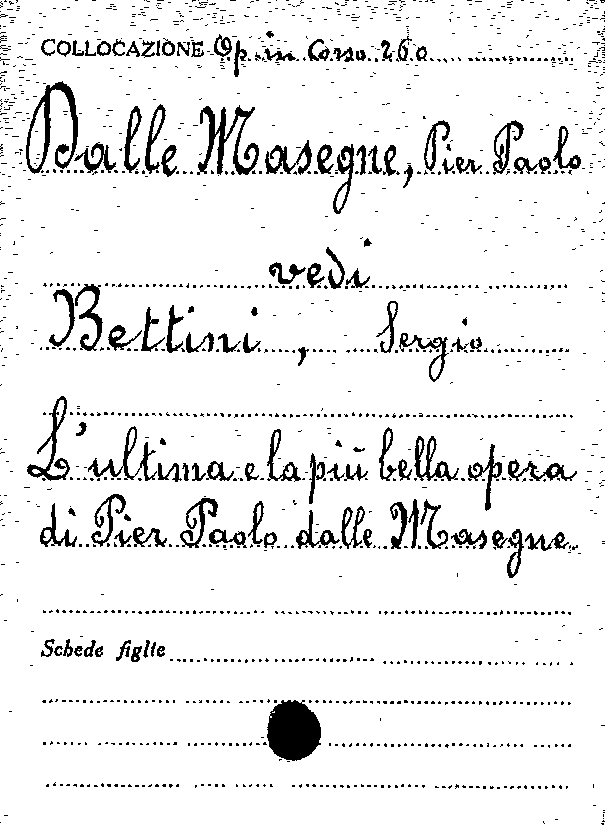 COLLOCAZIONE Op. in Corso 260
Dalle Masegne, Pier Paolo
vedi
Bettini, Sergio
L'ultima e la più bella opera
di Pier Paolo dalle Masegne.
Schede figlie